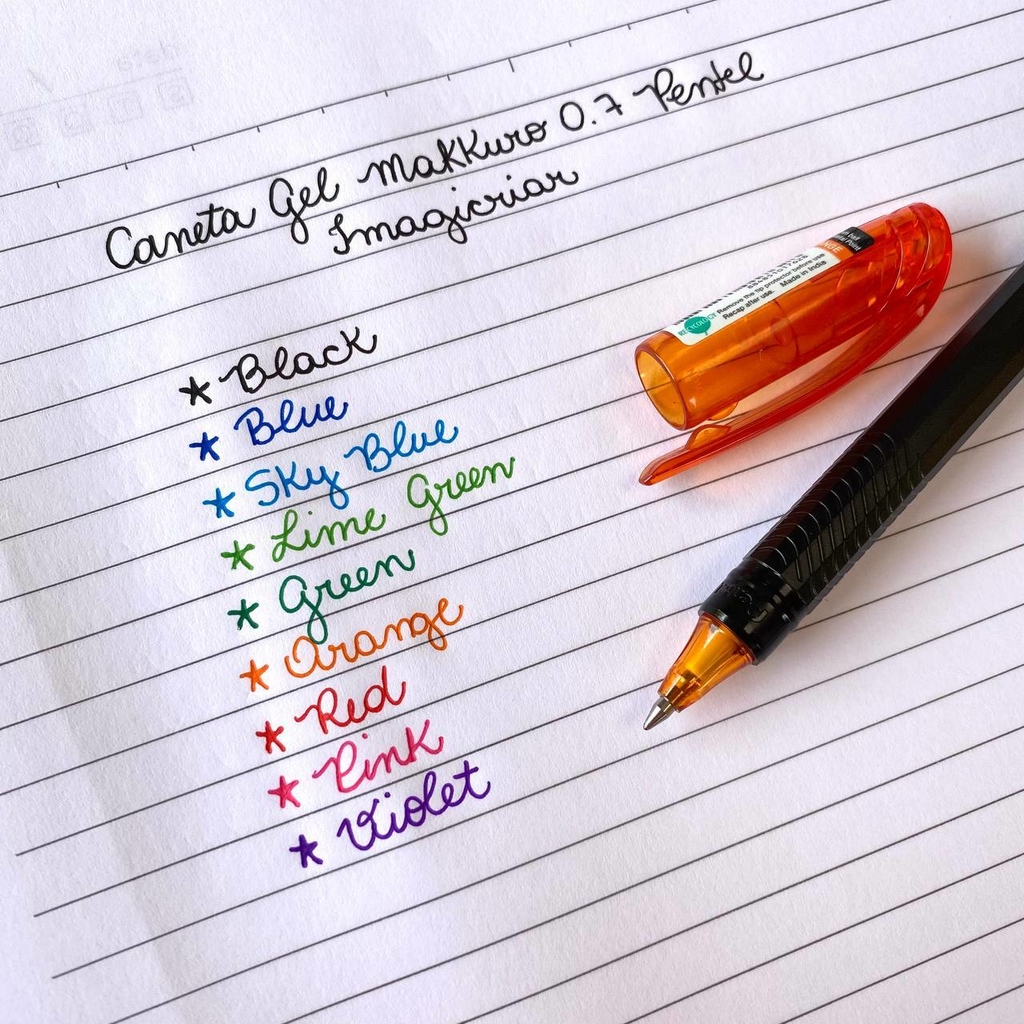 Caneta Gel Makkuro 0.7 Pentel
Imagicriar
★ Black
★ Blue
★ Sky Blue
★ Lime Green
★ Green
★ Orange
★ Red
★ Pink
★ Violet
RECYCOLOGY Remove the tip protector before use
Recap after use. Made in India